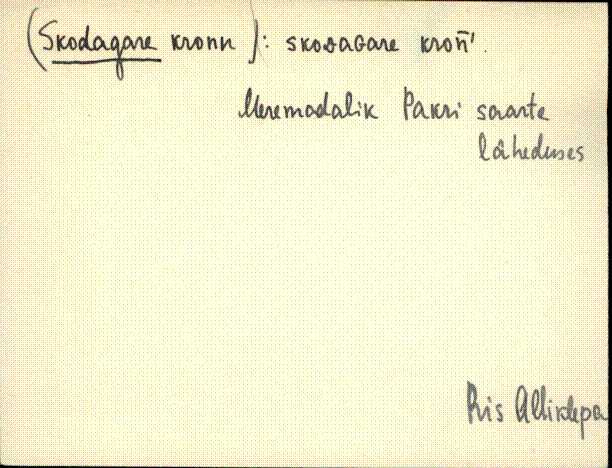 (Skodagare kronn): skodagare kron̄'.
Meremadalik Pakri saarte
läheduses
Ris Alliklepa